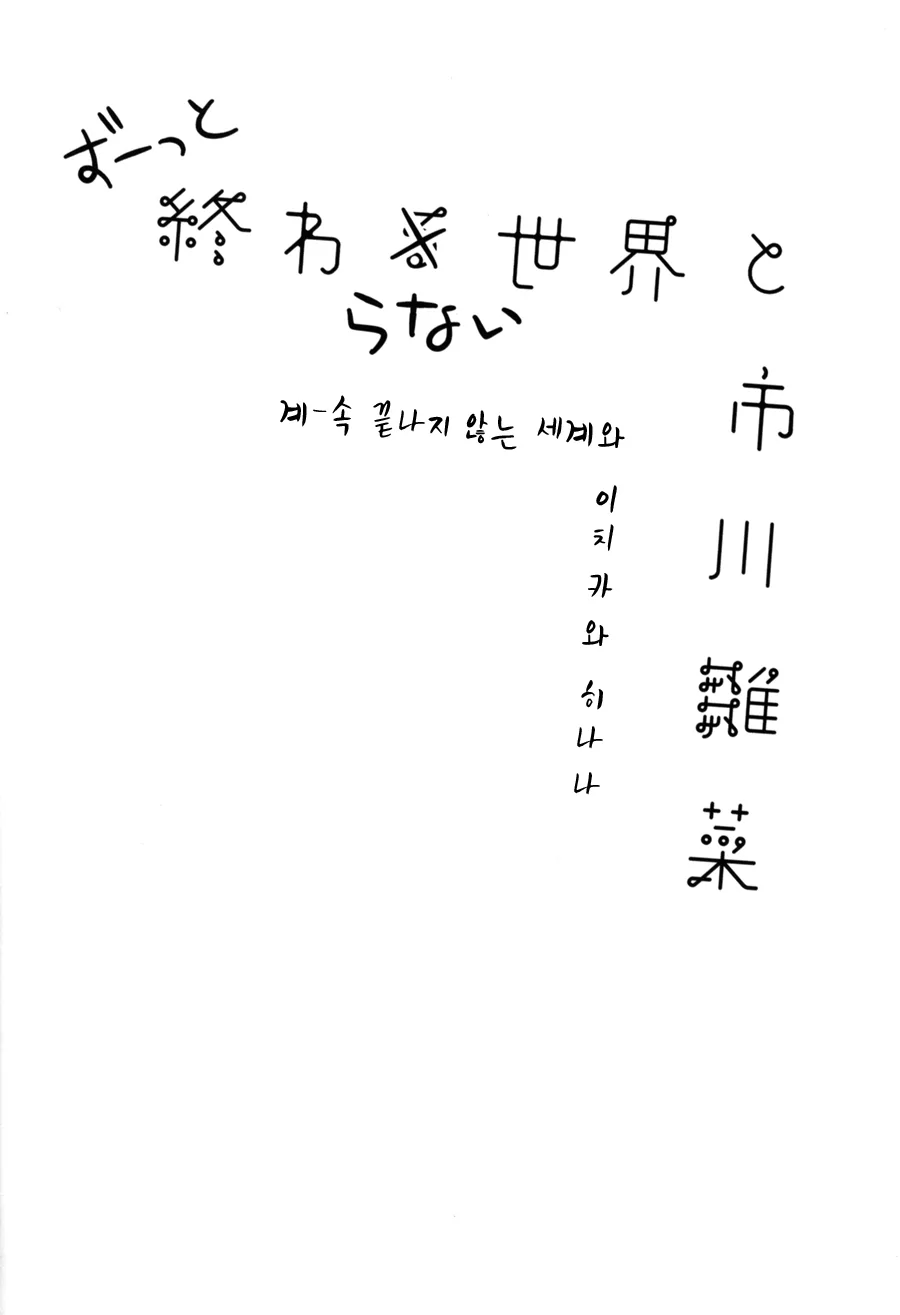 ずーっと
終わる世界と
らない
市川雛菜
계-속 끝나지 않는 세계와
이치카와 히나나